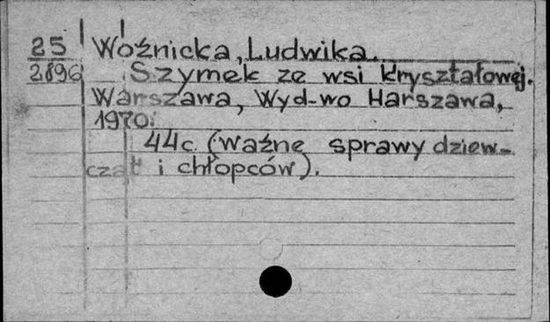 25 Woźnicka, Ludwika.
2896 Szymek ze wsi kryształowej.
Warszawa, Wyd-wo Harszawa,
1970.
44c. (Ważne sprawy dziew-
cząt i chłopców).